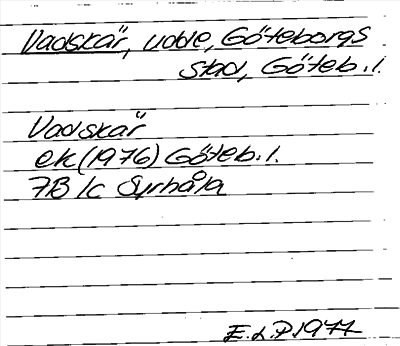 Vadskär, udde, Göteborgs
stad, Göteb. l.
Vadskär
ek (1976) Göteb. l.
7B 1c Syrhåla
E.L.P 1977